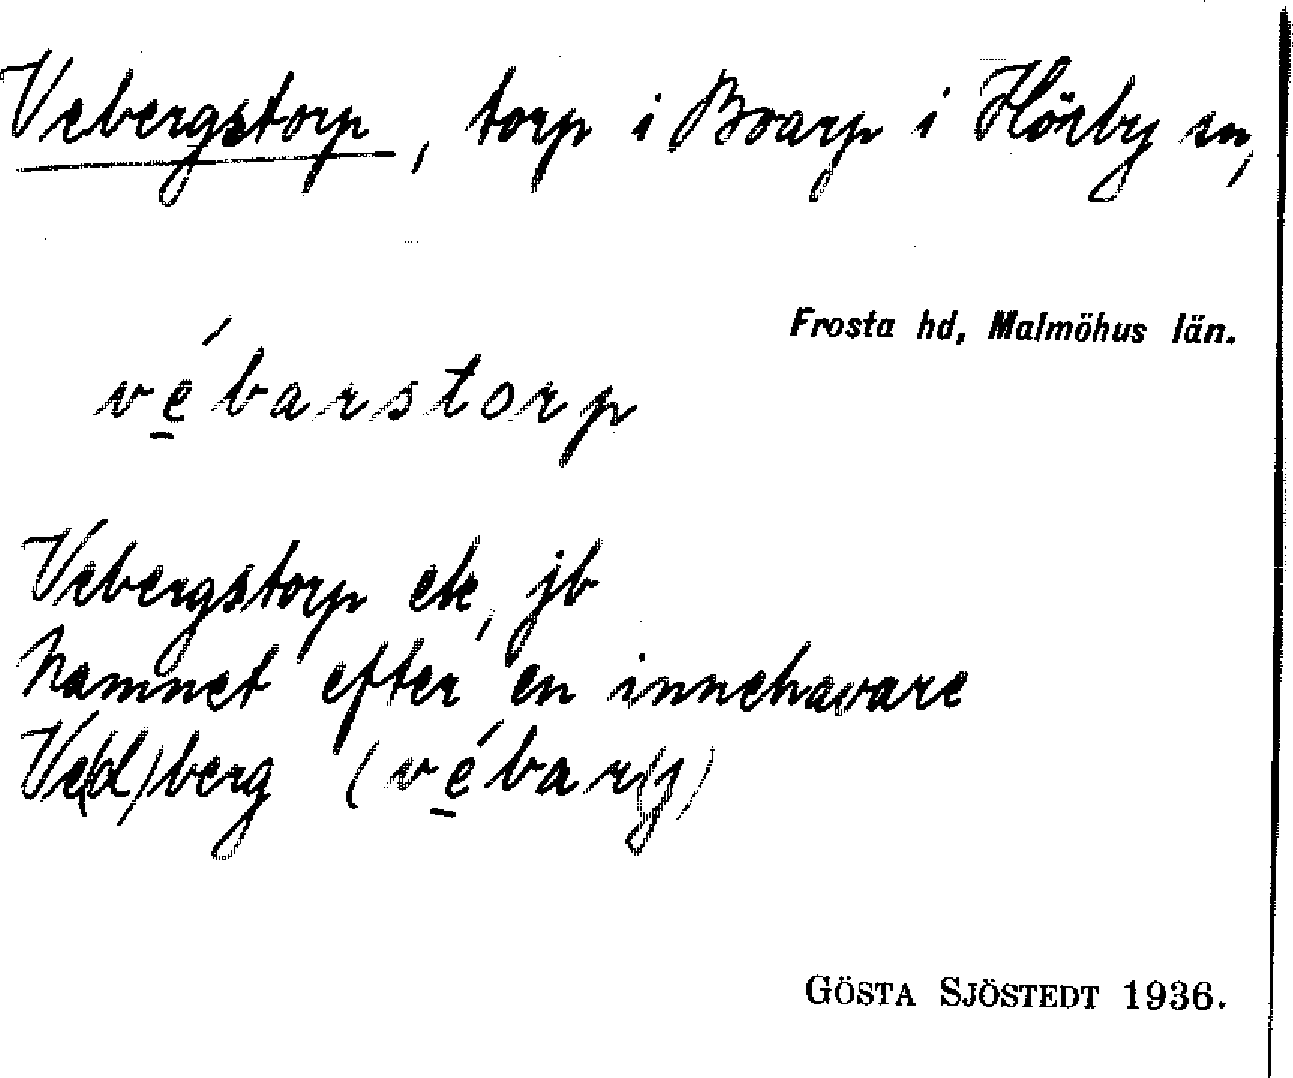 Vebergstorp, torp i Boarp i Hörby sn,
Frosta hd, Malmöhus län.
vé̱barstorp
Vebergstorp ek, jb
Namnet efter en innehavare
Ve(d)berg (vé̱barj)
GÖSTA SJÖSTEDT 1936.